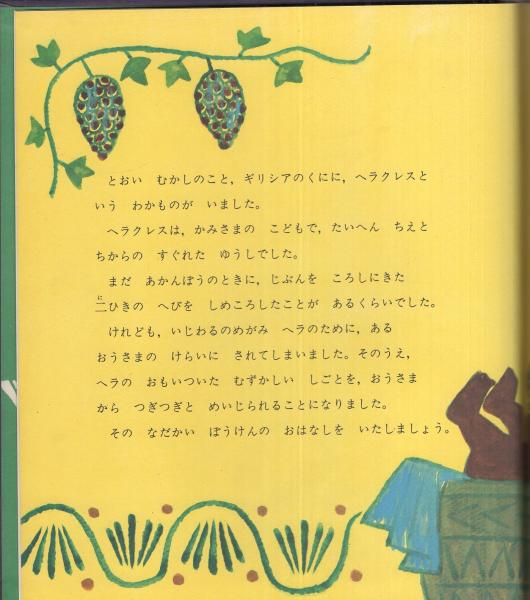 とおい　むかしのこと，ギリシアのくにに，ヘラクレスと
いう　わかものが　いました。
ヘラクレスは，かみさまの　こどもで，たいへん　ちえと
ちからの　すぐれた　ゆうしでした。
まだ　あかんぼうのときに，じぶんを　ころしにきた
二ひきの　へびを　しめころしたことが　あるくらいでした。
けれども，いじわるのめがみ　ヘラのために，ある
おうさまの　けらいに　されてしまいました。そのうえ，
ヘラの　おもいついた　むずかしい　しごとを，おうさま
から　つぎつぎと　めいじられることになりました。
その　なだかい　ぼうけんの　おはなしを　いたしましょう。